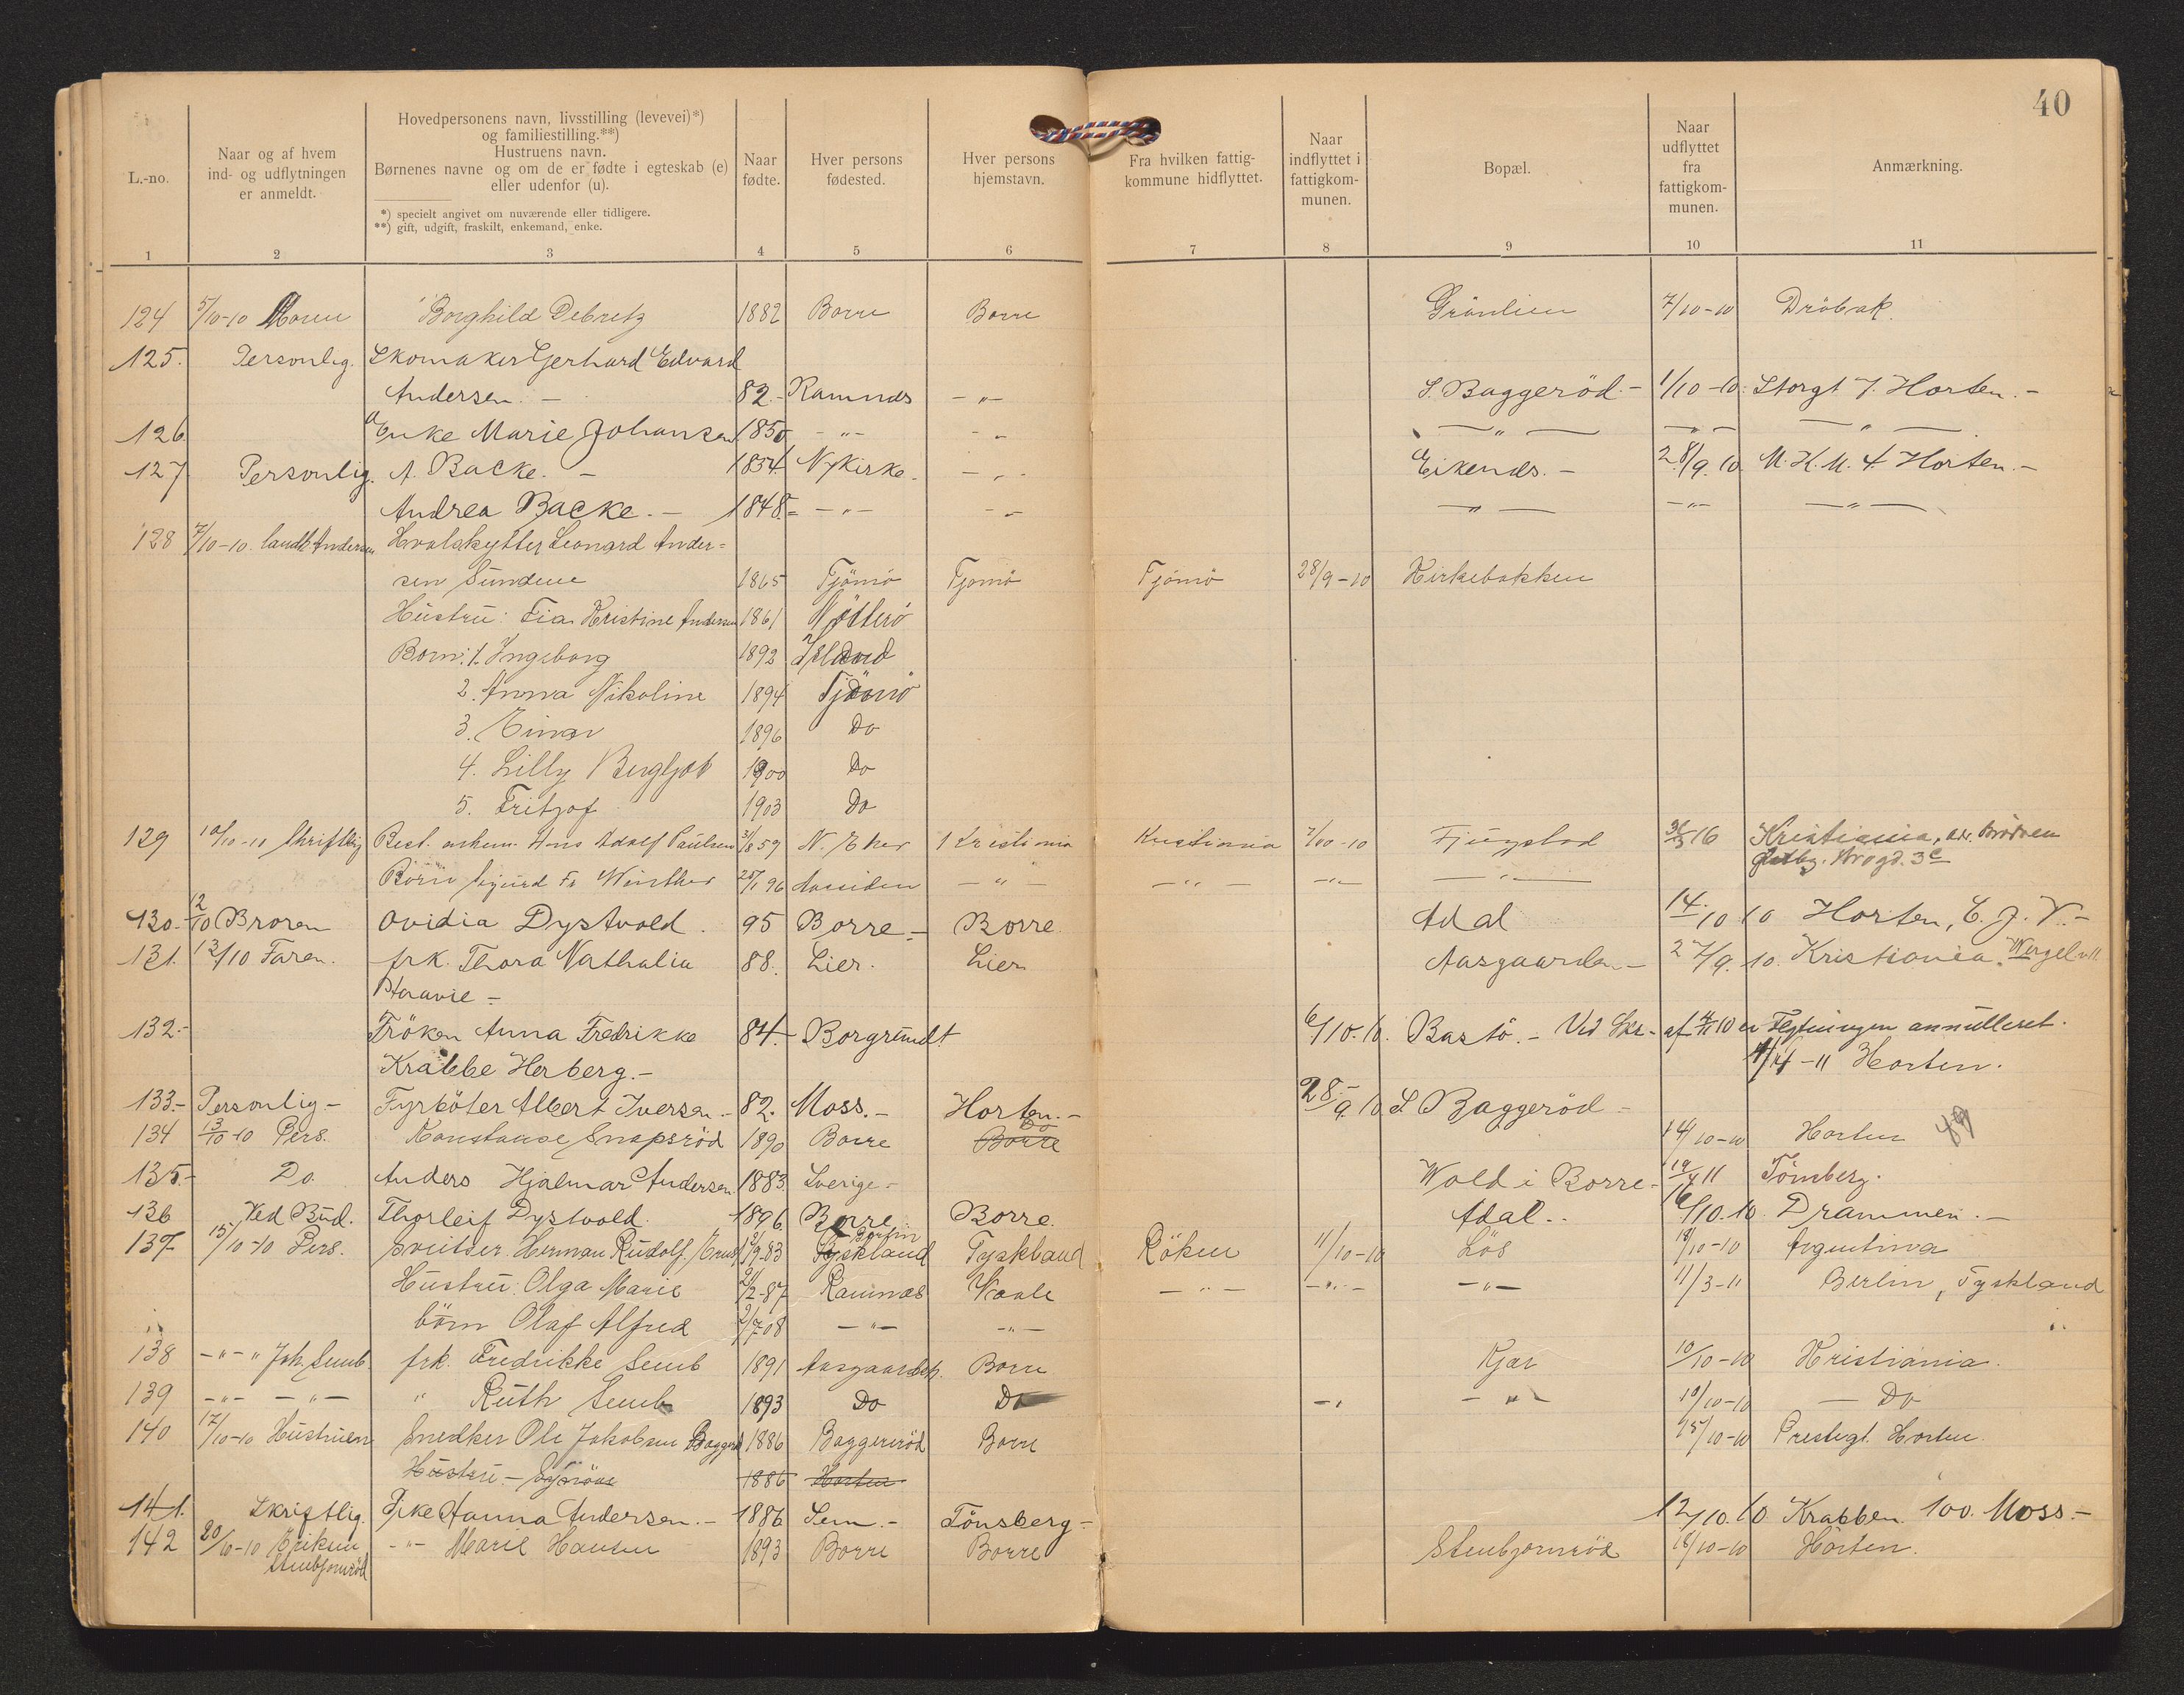 40
L.-no.
Naar og af hvem
ind- og udflytningen
er anmeldt.
Hovedpersonens navn, livsstilling (levevei)*)
og familiestilling.**)
Hustruens navn.
Børnenes navne og om de er fødte i egteskab (e)
eller udenfor (u).
*) specielt angivet om nuværende eller tidligere.
**) gift, udgift, fraskilt, enkemand, enke.
Naar
fødte.
Hver persons
fødested.
Hver persons
hjemstavn.
Fra hvilken fattig-
kommune hidflyttet.
Naar
indflyttet i
fattigkom-
munen.
Bopæl.
Naar
udflyttet
fra
fattigkom-
munen.
Anmærkning.
1 2 3 4 5 6 7 8 9 10 11
124 5/10-10 Moren Borghild Debretz 1882 Borre Borre Grönlien 7/10-10 Dröbak.
125. Personlig. Skomaker Gjerhard Edvard
Andersen. - 82.- Ramnæs -"- S. Baggeröd.- 1/10-10. Storgt 7. Horten.-
126. Enke Marie Johansen 1850 -"- -"- -"- -"- -"-
127 Personlig. A. Backe. - 1834 Nykirke. -"- Eikenæs.- 28/9.10. M.K.M. 4 Horten.-
Andrea Backe.- 1848.- -"- -"- -"- -"- -"-
128 7/10-10. landh. Andersen Hvalskytter Leonard Ander-
sen Sundene 1865 Tjömö Tjömö Tjömö 28/9-10 Kirkebakken
Hustru: Tia Kristine Andersen 1861 Nötterö
Born: 1. Ingeborg 1892 Island
2. Anna Nikoline 1894 Tjömö
3. Einar 1896 Do
4. Lilly Bergljot 1900 Do
5. Fritjof 1903 Do
129 10/10-10 Skriftlig Best. Hans Adolf Paulsen 31/8 59 N. Eker Kristiania Kristiania 7/10-10 Fjugstad 16 Kristiania,
3c
Börn Sigurd Fr Winther 25/1 96 Aassiden -"- -"- -"- -"-
130.- 12/10 Broren Ovidia Dystvold. 95 Borre.- Borre. Adal 14/10 10 Horten, C. J. V.-
131. 12/10 Faren. frk. Thora Nathalia 88. Lier. Lier Aasgaarden.- 27/9.10. Kristiania.
Staavie-
132.- Fröken Anna Fredrikke 84.- Borgrundt 6/10.10. Bastö.- Ved Skr. af 4/11 10 er Flytningen annulleret.
Krabbe Herberg.- 1/4-11 Horten.
133.- Personlig- Fyrböter Albert Iversen.- 82. Moss.- Horten.- 28/9.10 S Baggeröd-
134 13/10-10 Pers. Konstanse Snapsröd 1890 Borre Borre Do 14/10-10 Horten 49
135.- Do. Anders Hjalmar Andersen. 1883. Sverige- Wold i Borre- 19/4 11 Tönsberg.
136 Ved Bud. Thorleif Dystvold. 1896 Borre Borre. Adal.. 16/10.10. Drammen.-
137 15/10-10 Pers. sveitser Herman Rudolf Ernst 9-83 Berlin Tyskland Tyskland Röken 11/10-10 Lös 18/10-10 Argentina
Hustru: Olga Marie 2-87 Ramnæs Vaale -"- -"- -"- 11/3-11 Berlin, Tyskland
börn Olaf Alfred 2/7-08 -"- -"-
138 -"-" Joh. Semb frk. Fredrikke Semb 1891 Borre Kjær 10/10-10 Kristiania.
139 -"- -"- " Ruth Semb 1893 Do Do -"- -"- 10/10-10 - Do
140 17/10-10 Hustruen Snedker Ole Jakobsen 1886 Baggeröd Borre 15/10-10 Prestegt. Horten.
Hustru - 1886 Horten
141. Skriftlig. Pike Hanna Andersen.- 1886 Sem.- Tönsberg- 12/10.10 Krabben 100. Moss.-
142 20/10-10 Eriksen -"- Marie Hansen 1893 Borre Borre Stenbjörnröd 16/10-10 Horten.
Stenbjörnröd